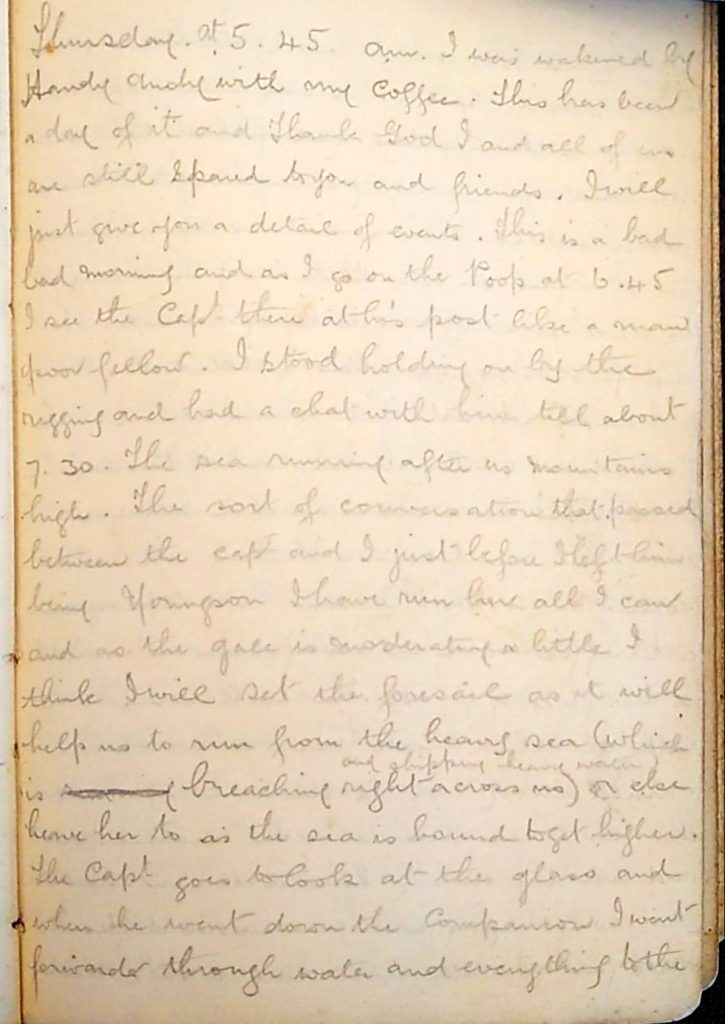 Thursday. at 5.45 am. I was wakened by
Handy Andy with my Coffee. This has been
a day of it and Thank God I and all of us
are still spared to you and friends. I will
just give you a detail of events. This is a bad
bad morning and as I go on the Poop at 6.45
I see the Capt there at his post like a man
poor fellow. I stood holding on by the
rigging and had a chat with him till about
7.30. The sea running after us mountains
high. The sort of conversation that passed
between the capt and I just before I left him
being Youngson I have run her all I can
and as the gale is moderating a little I
think I will set the foresail as it will
help us to run from the heavy sea (which
and shipping heavy water
is breaching right across us) or else
heave her to as the sea is bound to get higher.
The Capt goes to look at the glass and
when he went down the Companion I went
forward through water and everything to the